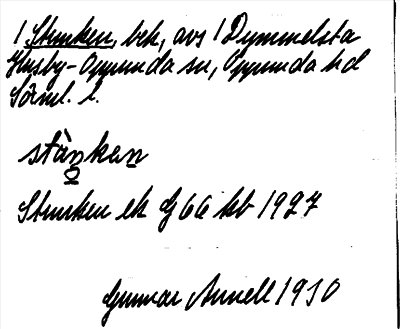 1 Strunken, bek, avs 1 Dymmelsta
Husby-Oppunda sn, Oppunda hd
Sörml. l.
stånkan
Strunken ek Gj 66 kb 1927
Gunnar Annell 1930